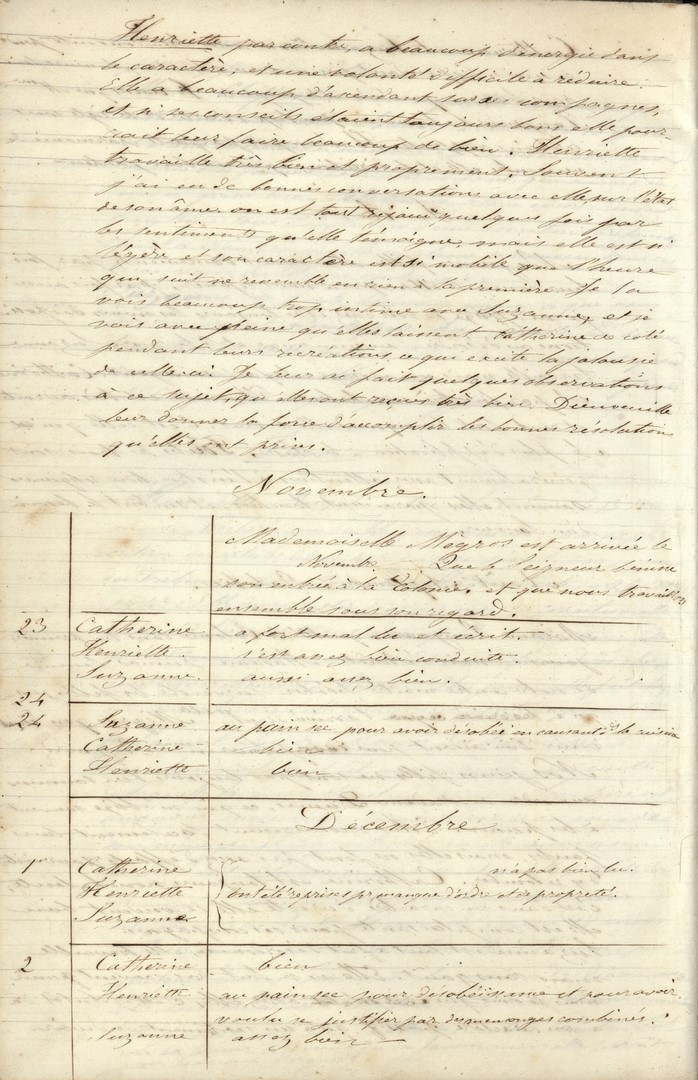 Henriette par contre, a beaucoup d'énergie dans
le caractère, et une volonté difficile à réduire.
Elle a beaucoup d'ascendant sur ses compagnes,
et si ses conseils étaient toujours bons elle pour-
rait leur faire beaucoup de bien. Henriette
travaille très bien et proprement. Souvent
j'ai eu de bonnes conversations avec elle sur l'état
de son âme. on est tout réjoui quelques fois par
les sentiments qu'elle témoigne, mais elle est si
légère et son caractère est si mobile que l'heure
qui suit ne ressemble en rien à la première. Je la
vois beaucoup trop intime avec Suzanne, et je
vois avec peine qu'elles laissent Catherine de coté
pendant leurs récréations, ce qui excite la jalousie
de celle-ci. Je leur ai fait quelques observations
à ce sujet, qu'elles ont reçues très bien. Dieu veuille
leur donner la force d'accomplir les bonnes résolutions
qu'elles ont prises.
Novembre.
Mademoiselle Mégros est arrivée le
Novembre. Que le Seigneur bénisse
son entrée à la Colonie, et que nous travaillions
ensemble sous son regard.
23 Catherine a fort mal lu et écrit.
Henriette. s'est assez bien conduite.
Suzanne. aussi assez bien.
24
24 Suzanne au pain sec pour avoir désobéi en causant à la cuisine
Catherine bien
Henriette bien
Décembre
1er Catherine n'a pas bien lu.
Henriette ont été reprises pr manque d'ordre et de propreté.
Suzanne
2 Catherine bien
Henriette au pain sec pour désobéissance et pour avoir
voulu se justifier par des mensonges combinés.
Suzanne assez bien